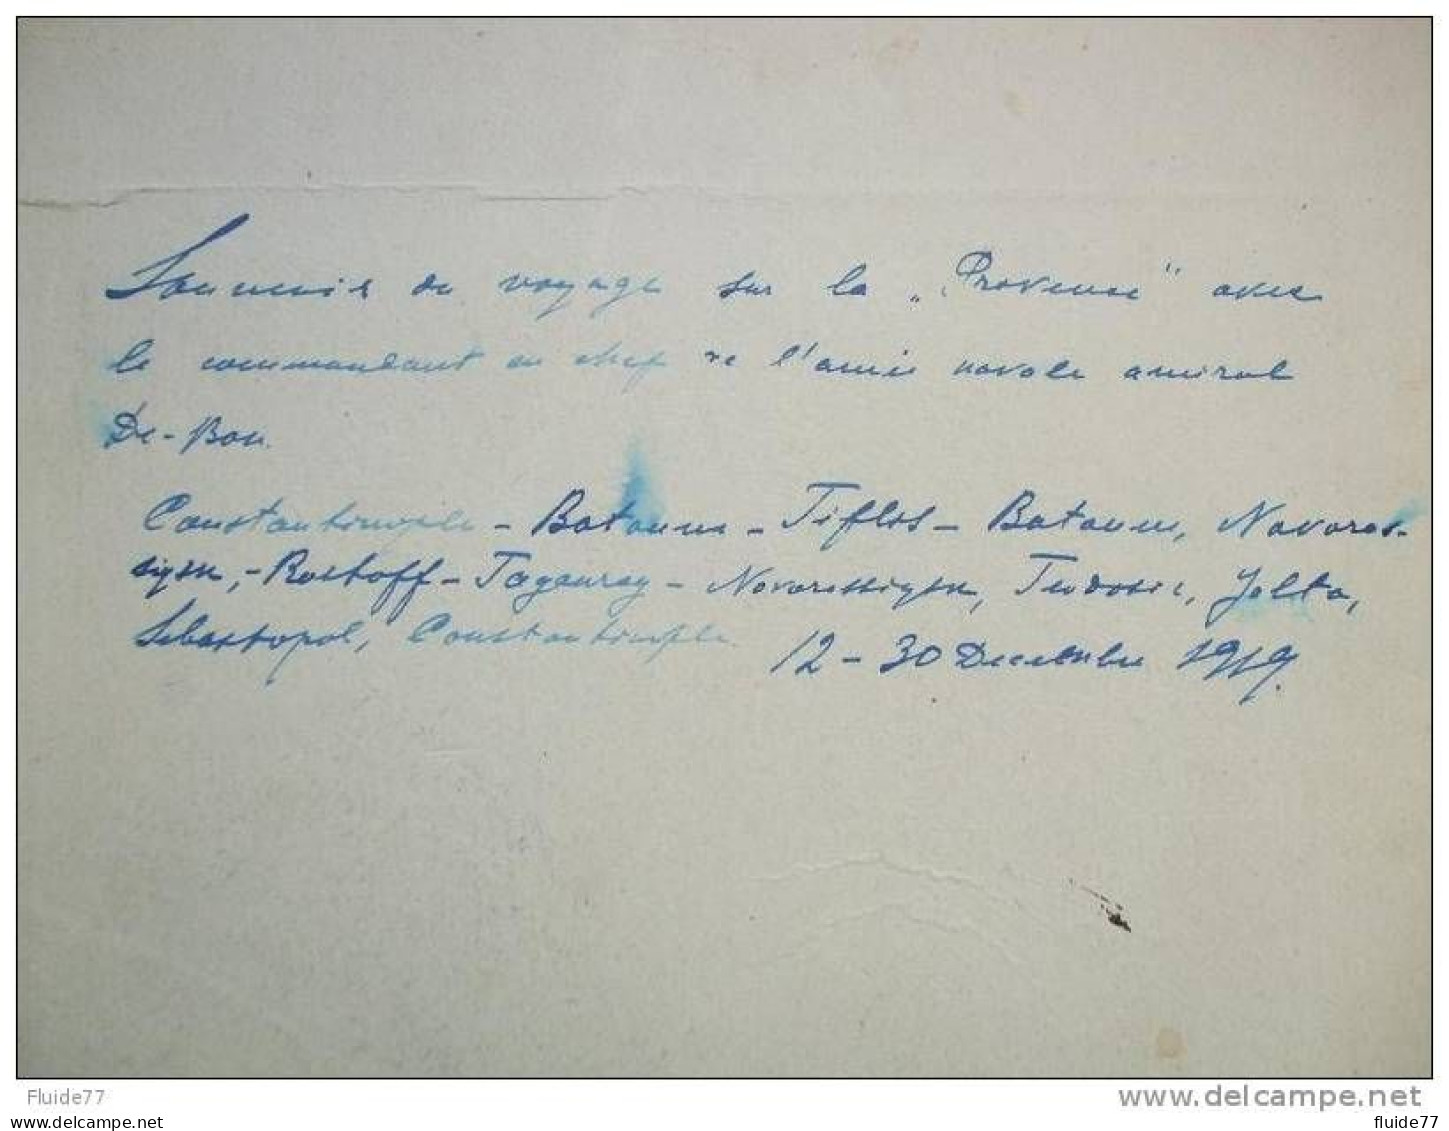 Souvenir du voyage sur la „Provence" avec
le commandant en chef de l'armée navale amiral
De-Bon.
Constantinople - Batoum - Tiflis - Batoum, Novoros-
siysk, - Rostoff - Taganrog - Novorossiysk, Teodosie, Jalta,
Sebastopol, Constantinople
12 - 30 Decembre 1919.
www.delcampe.net
Fluide77
www.fluide77.com
fluide77